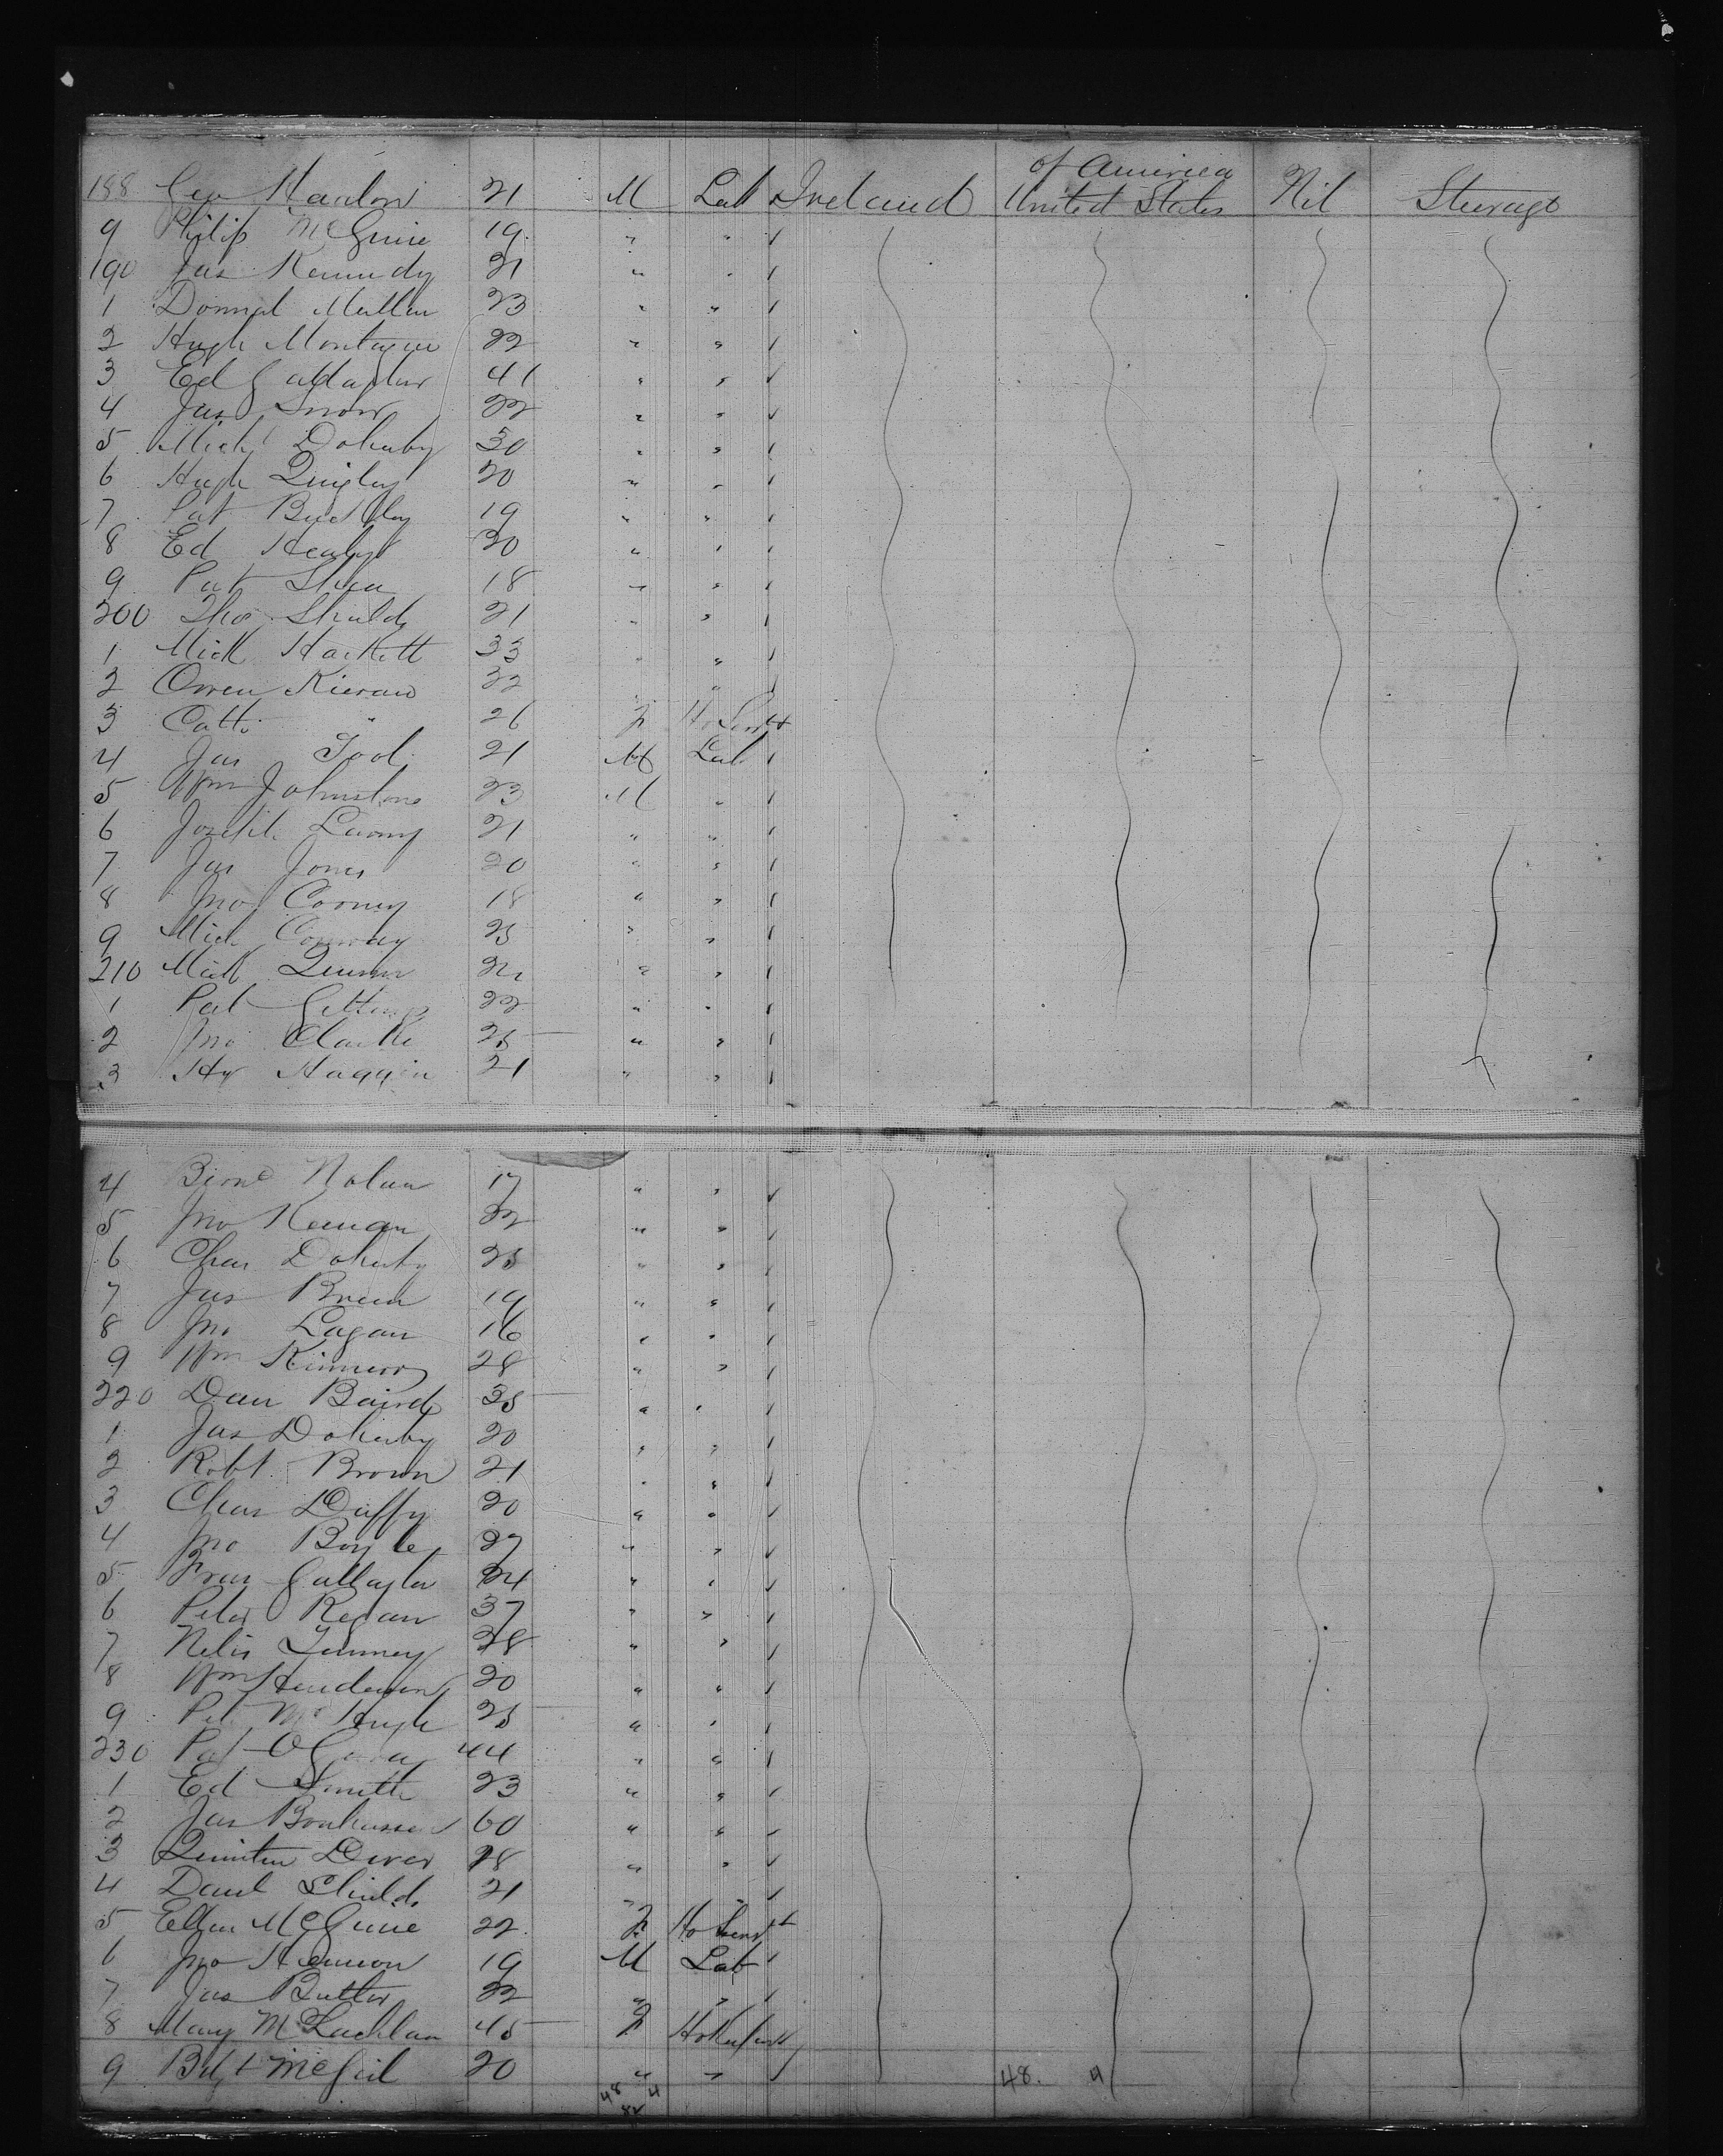 188 Geo Hanlon 21 M Lab Ireland United States of America Nil Steerage
9 Philip McGuire 19 " " "
190 Jas Kennedy 21 " " "
1 Mullen 23 " " "
2 Hugh Montague 22 " " "
3 Ed Gallagher 41 " " "
4 Jas Snow 22 " " "
5 Mich Doherty 30 " " "
6 Hugh Quigley 20 " " "
7 Pat Buckley 19 " " "
8 Ed Healy 20 " " "
9 Pat Shea 18 " " "
200 Thos Shields 21 " " "
1 Mick Hackett 33 " " "
2 Owen Kieran 32 " " "
3 Cath " 26 F Ho Servt
4 Jas Tool 21 M Lab "
5 Wm Johnstone 23 M " "
6 Joseph 21 " " "
7 Jas Jones 20 " " "
8 Jno Cooney 18 " " "
9 Mich Conway 25 " " "
210 Mick Quinn 22 " " "
1 Pat 22 " " "
2 Jno Clarke 25 " " "
3 Hy Haggin 21 " " "
4 Nolan 17 " " "
5 Jno Keenan 22 " " "
6 Chas Doherty 25 " " "
7 Jas Breen 19 " " "
8 Jno Lagan 16 " " "
9 Wm 28 " " "
220 Dan Baird 35 " " "
1 Jas Doherty 20 " " "
2 Robt Brown 21 " " "
3 Chas Duffy 20 " " "
4 Jno Boyle 27 " " "
5 Fran Gallagher 24 " " "
6 Peter Regan 37 " " "
7 28 " " "
8 Wm Henderson 20 " " "
9 Pat McHugh 25 " " "
230 Pat 44 " " "
1 Ed Smith 23 " " "
2 Jas 60 " " "
3 Dever 18 " " "
4 Danl Shields 21 " " "
5 Ellen McGuire 22 F Ho Servt
6 Jno 19 M Lab "
7 Jas Butler 22 " " "
8 Mary McLachlan 45 F
9 McGeil 20 " " " 48. 4
48 4